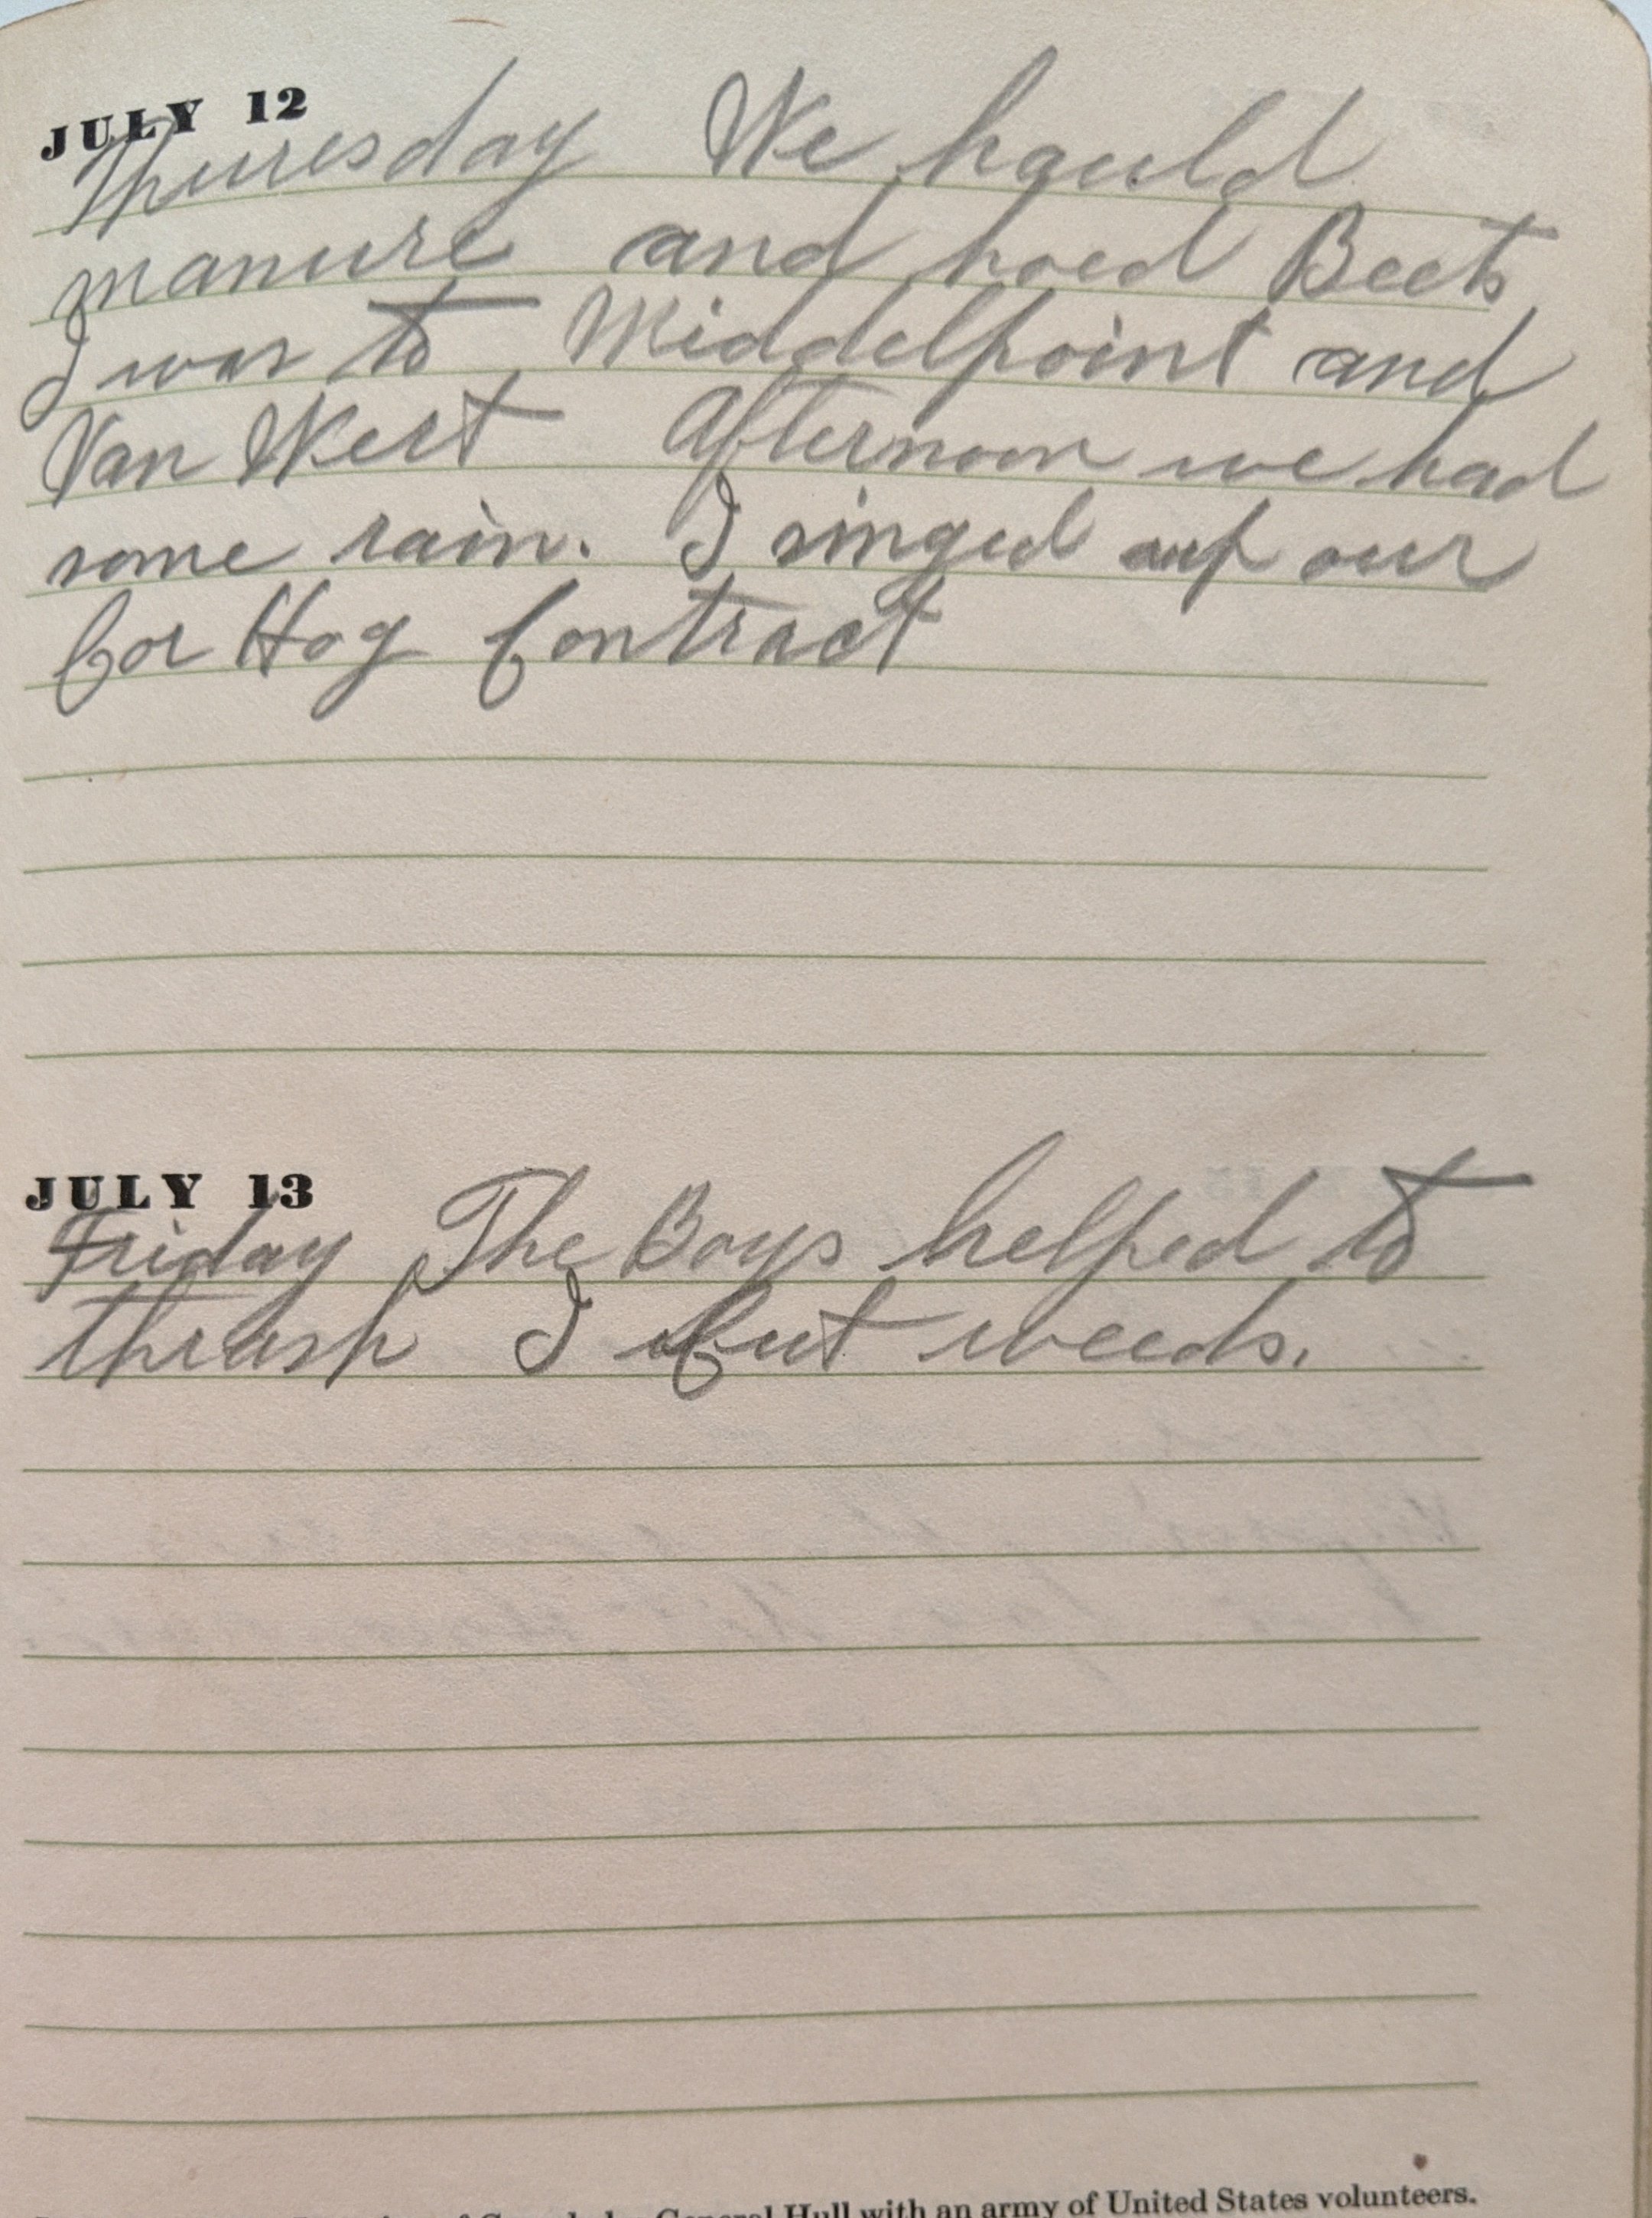 JULY 12
Thuresday We hauld
manure and hoed Beets
I was to Middelpoint and
Van Wert Afternoon we had
some rain. I singed up our
Cor Hog Contract
JULY 13
Friday The Boys helped to
thrash I Cut weeds.
General Hull with an army of United States volunteers.